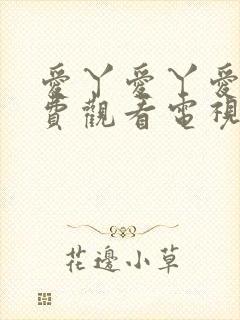 愛丫愛丫愛
費觀看電視
花邊小草